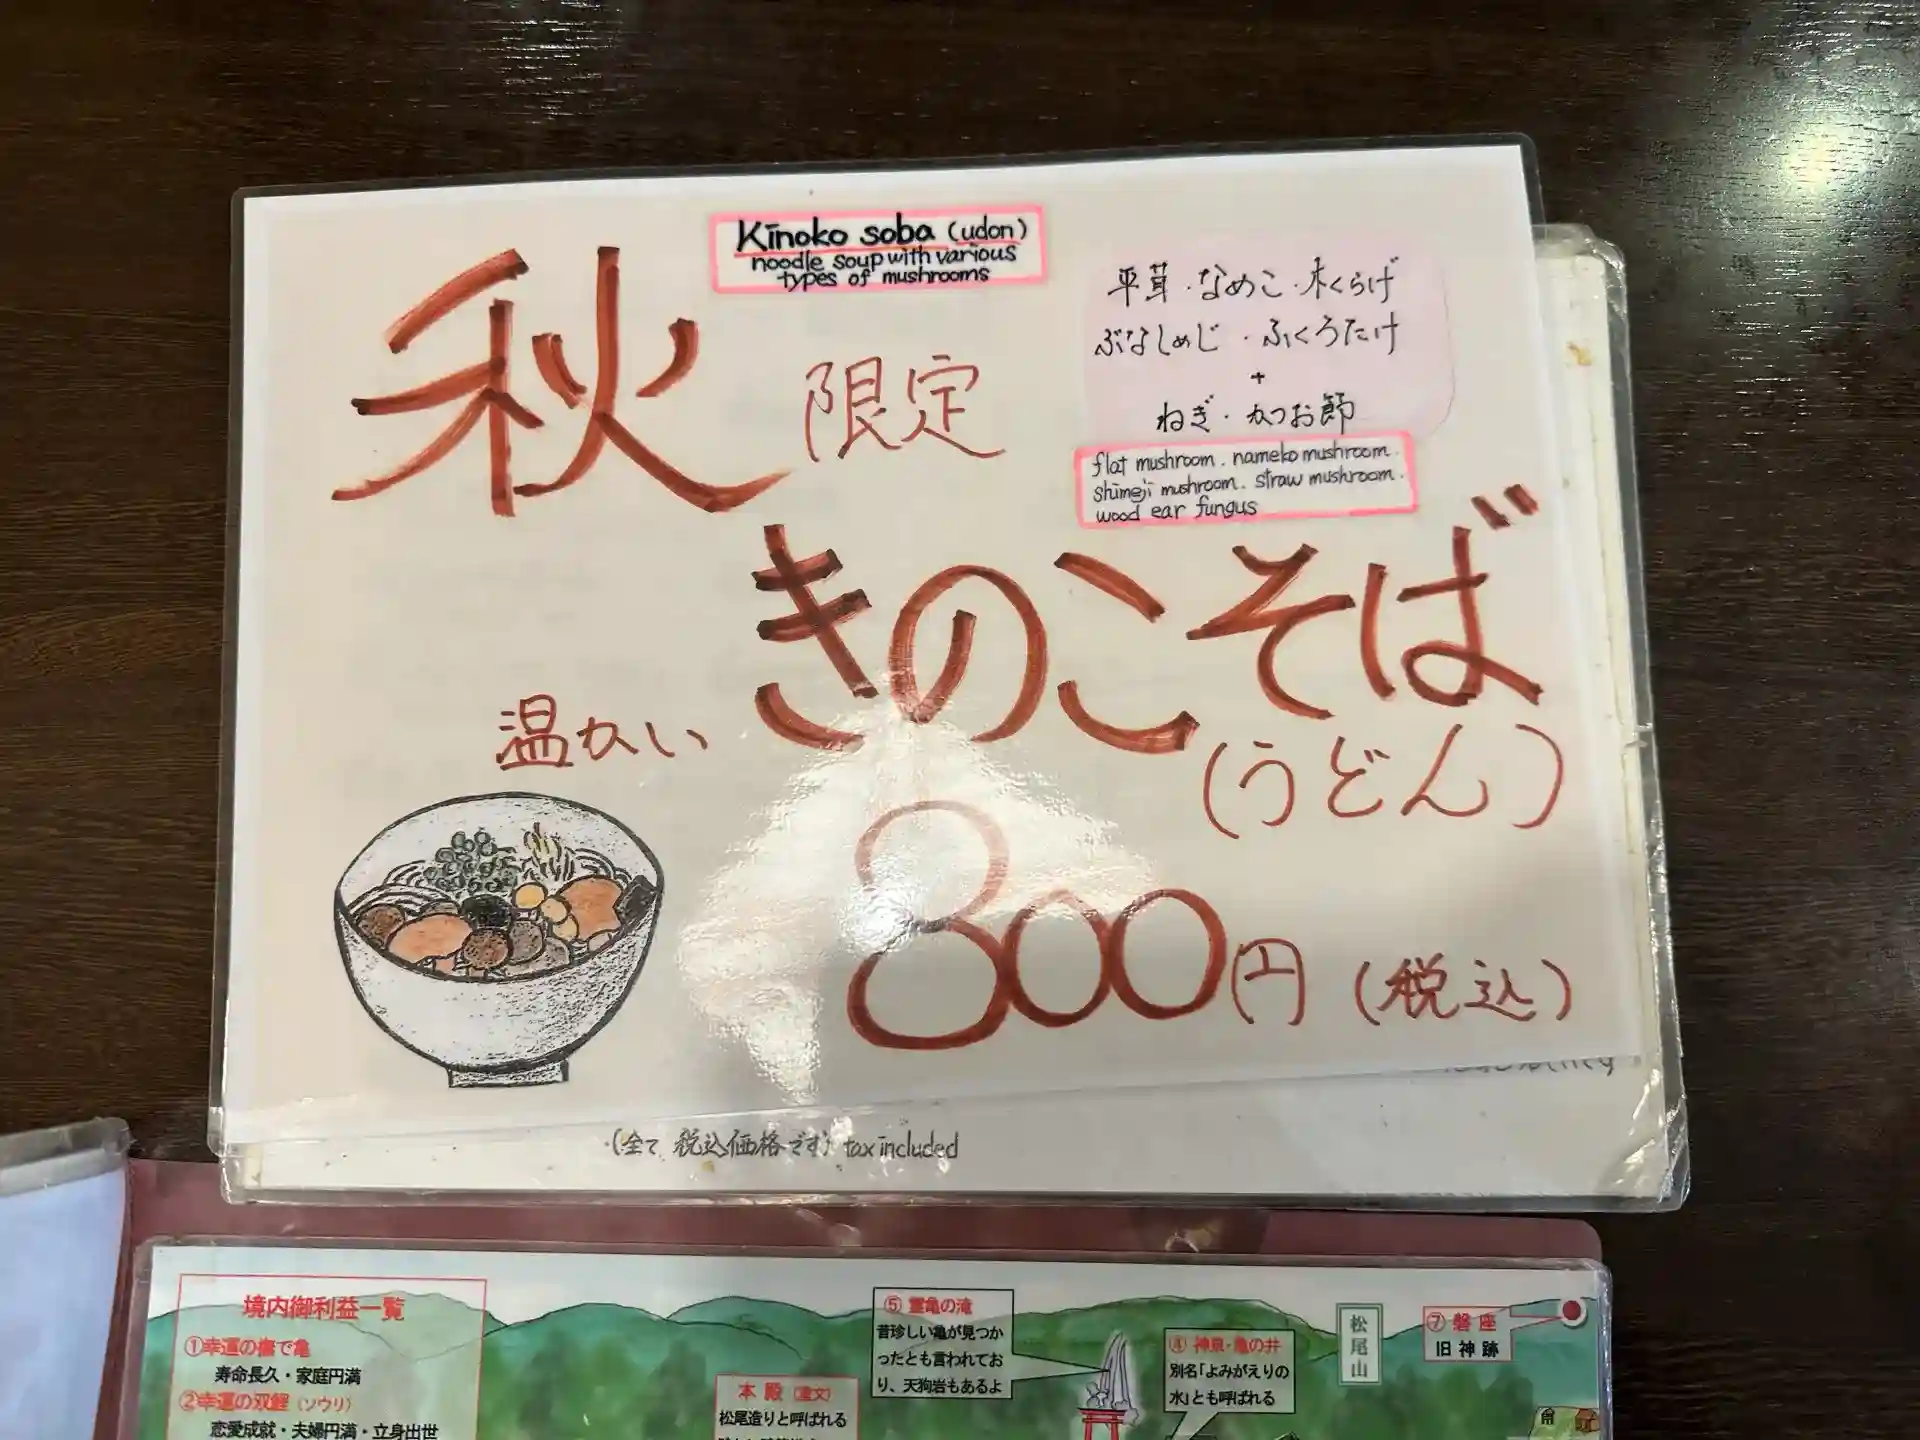 Kinoko soba (udon)
noodle soup with various
types of mushrooms
秋 限定
平茸・なめこ・木くらげ
ぶなしめじ・ふくろたけ
+
ねぎ・かつお節
flat mushroom. nameko mushroom.
shimeji mushroom. straw mushroom.
wood ear fungus
きのこそば
(うどん)
温かい
800円 (税込)
(全て 税込価格です) tax included
境内御利益一覧
①幸運の撫で亀
寿命長久・家庭円満
②幸運の双鯉(ソウリ)
恋愛成就・夫婦円満・立身出世
本殿(重文)
松尾造りと呼ばれる
⑤ 霊亀の滝
昔珍しい亀が見つか
ったとも言われてお
り、天狗岩もあるよ
④ 神泉・亀の井
別名「よみがえりの
水」とも呼ばれる
松尾山
⑦ 磐座
旧神跡